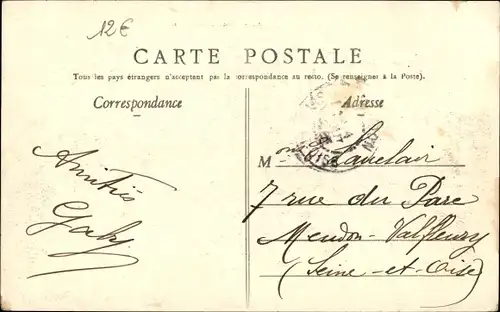 12€
CARTE POSTALE
Tous les pays étrangers n'acceptent pas la correspondance au recto. (Se renseigner à la Poste).
Correspondance
Adresse
Amitiés
Gaby
Mon Lauclair
7 rue du Parc
Meudon-Valfleury
(Seine-et-Oise)